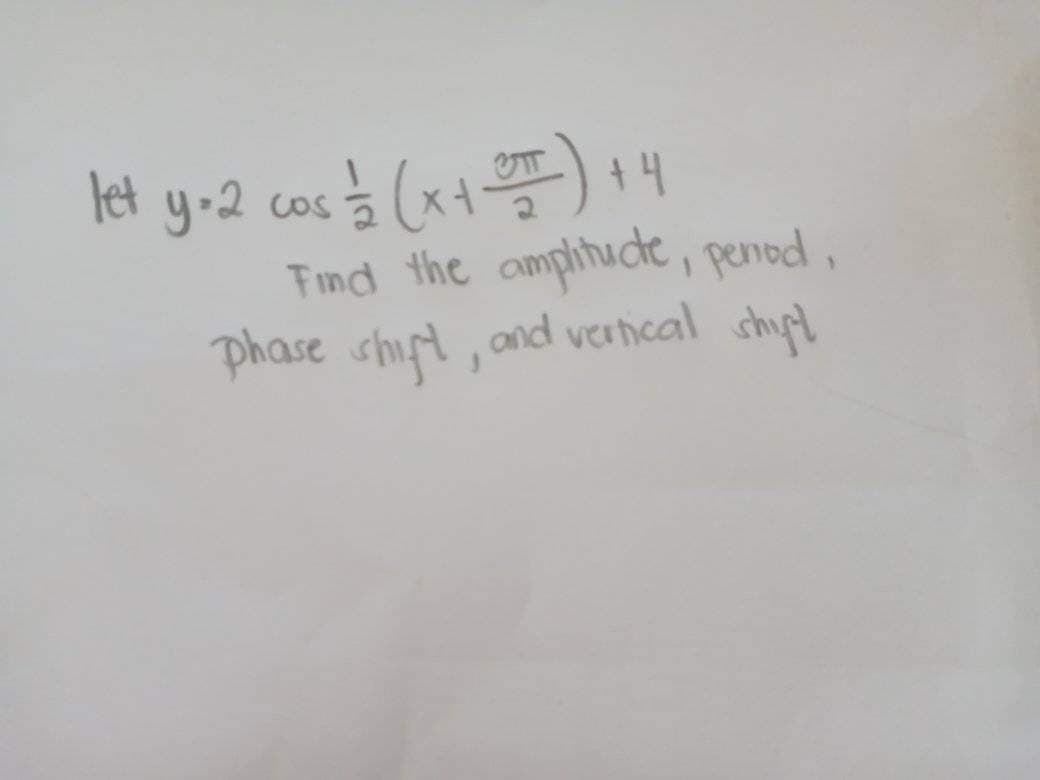 let y=2 cos 1/2 (x+ 3π/2) +4
Find the amplitude, period,
phase shift, and vertical shift